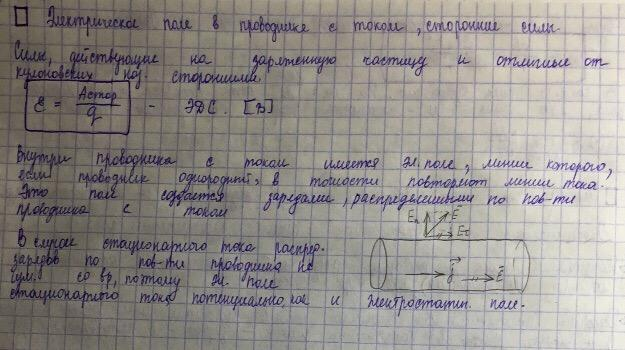 Электрическое поле в проводнике с током, сторонние силы.
Силы, действующие на заряженную частицу и отличные от
кулоновских наз. сторонними.
Ɛ = Aстор/q - ЭДС. [В]
Внутри проводника с током имеется эл. поле, линии которого,
если проводник однородный, в точности повторяют линии тока.
Это поле создается зарядами, распределенными по пов-ти
проводника с током
En E⃗ Eτ
В случае стационарного тока распред.
зарядов по пов-ти проводника не
со вр, поэтому эл. поле
j⃗ E⃗
стационарного тока потенциально, как и электростатич. поле.